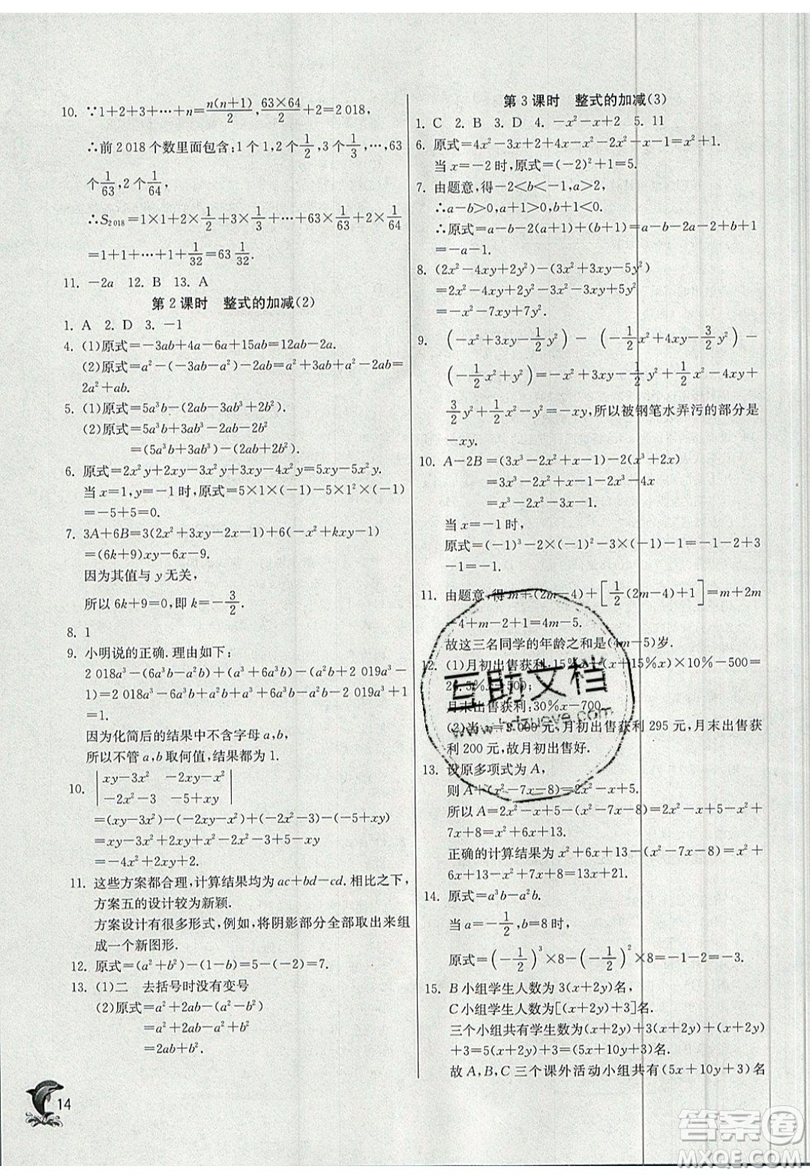 10. ∵1+2+3+…+n=n(n+1)/2, 63×64/2+2=2 018,
∴前 2 018 个数里面包含:1 个 1,2 个 1/2,3 个 1/3,…,63
个 1/63,2 个 1/64,
∴S₂₀₁₈=1×1+2×1/2+3×1/3+…+63×1/63+2×1/64
=1+1+…+1+1/32=63 1/32.
11. −2a 12. B 13. A
第 2 课时 整式的加减(2)
1. A 2. D 3. −1
4. (1)原式=−3ab+4a−6a+15ab=12ab−2a.
(2)原式=a²−(−3ab−2a²+2ab)=a²+3ab+2a²−2ab=
2a²+ab.
5. (1)原式=5a³b−(2ab³−3ab³+2b²).
(2)原式=5a³b+3ab³−2ab−2b²
=(5a³b+3ab³)−(2ab³+2b²).
6. 原式=2x²y+2xy−3x²y+3xy−4x²y=5xy−5x²y.
当 x=1,y=−1 时,原式=5×1×(−1)−5×1²×(−1)
=−5+5=0.
7. 3A+6B=3(2x²+3xy−2x−1)+6(−x²+kxy−1)
=(6k+9)xy−6x−9.
因为其值与 y 无关,
所以 6k+9=0,即 k=−3/2.
8. 1
9. 小明说的正确. 理由如下:
2 018a³−(6a³b−3a³)−(−6a³b+2 019a³−1)=
2 018a³−6a³b+3a³−(−6a³b+2 019a³−1)=1.
因为化简后的结果中不含字母 a,b,
所以不管 a,b 取何值,结果都为 1.
10. |xy−3x² −2xy−x²|
|−2x²−3 −5+xy|
=(xy−3x²)−(−2xy−x²)−(−2x²−3)+(−5+xy)
=xy−3x²+2xy+x²+2x²+3−5+xy
=−4x²+2xy+2x²+2.
11. 这些方案都合理,计算结果均为 ac+bd−cd. 相比之下,
方案五的设计较为新颖.
方案设计有很多形式,例如,将阴影部分全部取出来组
成一个新图形.
12. 原式=(a²+b²)−(1−5)=(a²+b²)−(1−5)=7.
13. (1)二 去括号时没有变号
(2)原式=a²+2ab−(a²−b²)
=a²+2ab−a²+b²
=2ab+b².
14
第 3 课时 整式的加减(3)
1. C 2. B 3. D 4. −x²−x+2 5. 11
6. 原式=4x²−3x+2x−4x²+2x²−x²+x+1=x²+1.
当 x=−2 时,原式=(−2)²+1=5.
7. 由题意,得−2<b<−1,a>2,
∴a−b>0,a+b>0.
∴原式=a−b−2(a+b)−2a−2a+b+1
=−a−1.
8. (2x²−4xy+2y²)−(x²−xy+y²)
=x²−3xy+y².
9. (−x²+3xy−1/2y²)−(−1/2x²+4xy−3/2y²)
−(−1/2x²+y²)=−x²+3xy−1/2y²+1/2x²−4xy+
3/2y²+1/2x²−y²=−xy,所以被钢笔水弄污的部分是
−xy.
10. A−2B=(3x³−2x²+x−1)−2(x³+2x)
=3x³−2x²+x−1−2x³−4x
=x³−2x²−3x−1.
当 x=−1 时,
原式=(−1)³−2×(−1)²−3×(−1)−1=−1−2+3
−1=−1.
11. 由题意,得 m+(2m−4)+[1/2(2m−4)+1]=m+2m
−4+m−2+1=4m−5.
故这三名同学的年龄之和是(4m−5)岁.
12. (1)月初出售获利:
月末出售获利:30%x−700.
出售获利 295 元,月末出售获
利 200 元,故月初出售好.
13. 设原多项式为 A,
则 A+(x²−7x−8)=2x²+5x−4.
所以 A=2x²+5x−4−(x²−7x−8)=2x²+5x−4−x²+
7x+8=x²+12x+4.
正确的计算结果为 x²+12x+4−(x²−7x−8)=x²+
6x+13−x²+7x+8=13x+21.
14. 原式=a³b−a²b.
当 a=−1/2,b=8 时,
原式=(−1/2)³×8−(−1/2)²×8=−1−2=−3.
15. B 小组学生人数为 3(x+2y)名,
C 小组学生人数为[(x+2y)+3]名.
三个小组共有学生数为(x+2y)+3(x+2y)+(x+2y)
+3=5(x+2y)+3=(5x+10y+3)名,
故 A,B,C 三个课外活动小组共有(5x+10y+3)名
互助文档
答案圈
MXQE.COM